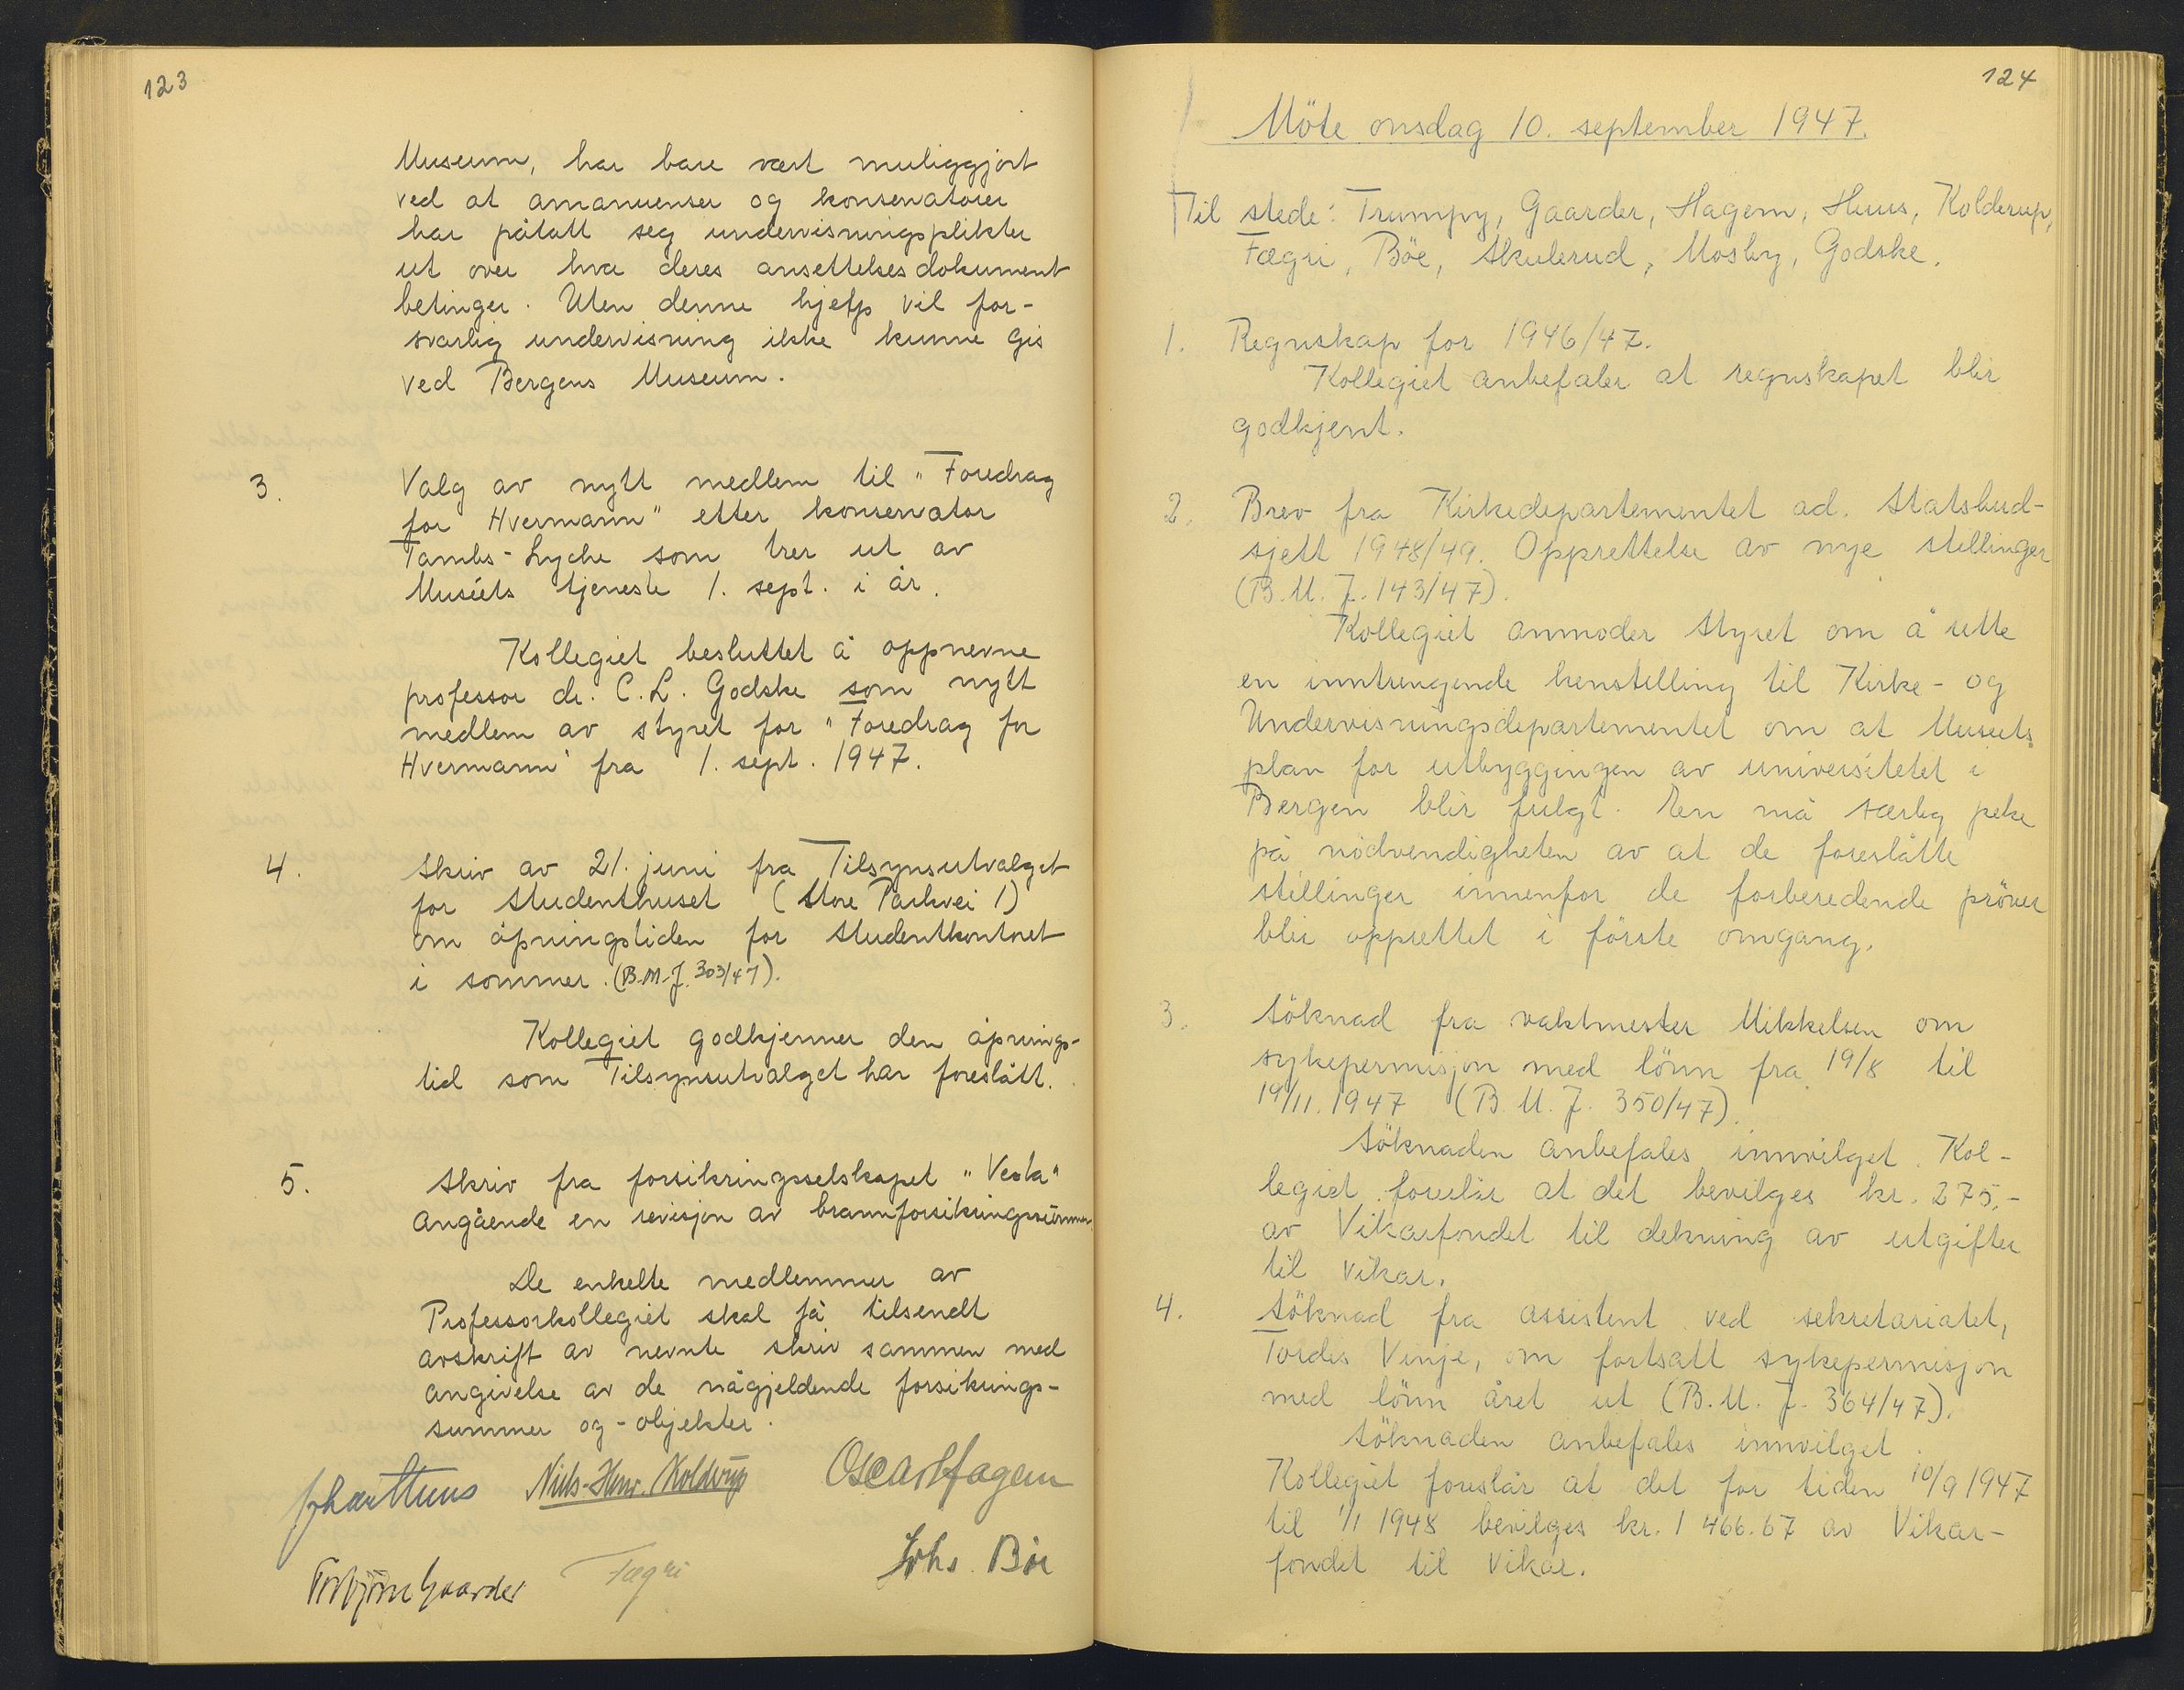 123
Museum, har bare vært muliggjort
ved at amanuenser og konservatorer
har påtatt seg undervisningsplikter
ut over hva deres ansettelsesdokument
betinger. Uten denne hjelp vil for-
svarlig undervisning ikke kunne gis
ved Bergens Museum.
3. Valg av nytt medlem til "Foredrag
for Hvermann" etter konservator
Tambs-Lyche som trer ut av
Muséets tjeneste 1. sept. i år.
Kollegiet besluttet å oppnevne
professor dr. C.L. Godske som nytt
medlem av styret for "Foredrag for
Hvermann" fra 1. sept. 1947.
4. Skriv av 21. juni fra Tilsynsutvalget
for Studenthuset (Store Parkvei 1)
om åpningstiden for Studentkontoret
i sommer. (B.M.J. 303/47).
Kollegiet godkjenner den åpnings-
tid som Tilsynsutvalget har foreslått.
5. Skriv fra forsikringsselskapet "Vesta"
angående en revisjon av brannforsikringssummer.
De enkelte medlemmer av
Professorkollegiet skal få tilsendt
avskrift av nevnte skriv sammen med
angivelse av de någjeldende forsikrings-
summer og -objekter.
Niels-Henr. Kolderup Oscar Hagem
Torbjørn Gaarder Fægri Johs. Bøe
124
Möte onsdag 10. september 1947.
Til stede: Trumpy, Gaarder, Hagem, Huus, Kolderup,
Fægri, Böe, Skulerud, Mosby, Godske.
1. Regnskap for 1946/47.
Kollegiet anbefaler at regnskapet blir
godkjent.
2. Brev fra Kirkedepartementet ad. Statsbud-
sjett 1948/49. Opprettelse av nye stillinger
(B.M.J. 143/47).
Kollegiet anmoder Styret om å rette
en inntrengende henstilling til Kirke- og
Undervisningsdepartementet om at Museets
plan for utbyggingen av universitetet i
Bergen blir fulgt. En må særlig peke
på nödvendigheten av at de foreslåtte
stillinger innenfor de forberedende pröver
blir opprettet i förste omgang.
3. Söknad fra vaktmester Mikkelsen om
sykepermisjon med lönn fra 19/8 til
19/11. 1947 (B.M.J. 350/47).
Söknaden anbefales innvilget. Kol-
legiet foreslår at det bevilges kr. 275,-
av Vikarfondet til dekning av utgifter
til vikar.
4. Söknad fra assistent ved sekretariatet,
Tordis Vinje, om fortsatt sykepermisjon
med lönn året ut (B.M.J. 364/47).
Söknaden anbefales innvilget.
Kollegiet foreslår at det for tiden 10/9 1947
til 1/1 1948 bevilges kr. 1 466.67 av Vikar-
fondet til vikar.